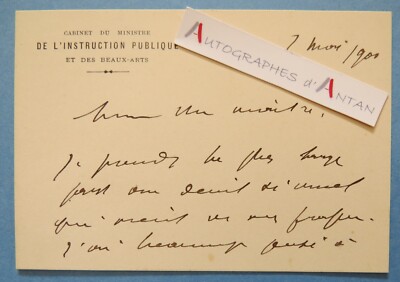 CABINET DU MINISTRE
DE L'INSTRUCTION PUBLIQUE
ET DES BEAUX-ARTS
AUTOGRAPHES d'ANTAN
mon
Je prends la plus large
part au deuil si cruel
qui vient de vous frapper.
J'ai beaucoup pensé à